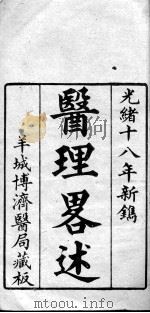 光緒十八年新鐫
醫理畧述
羊城博濟醫局藏板
mtoou.info